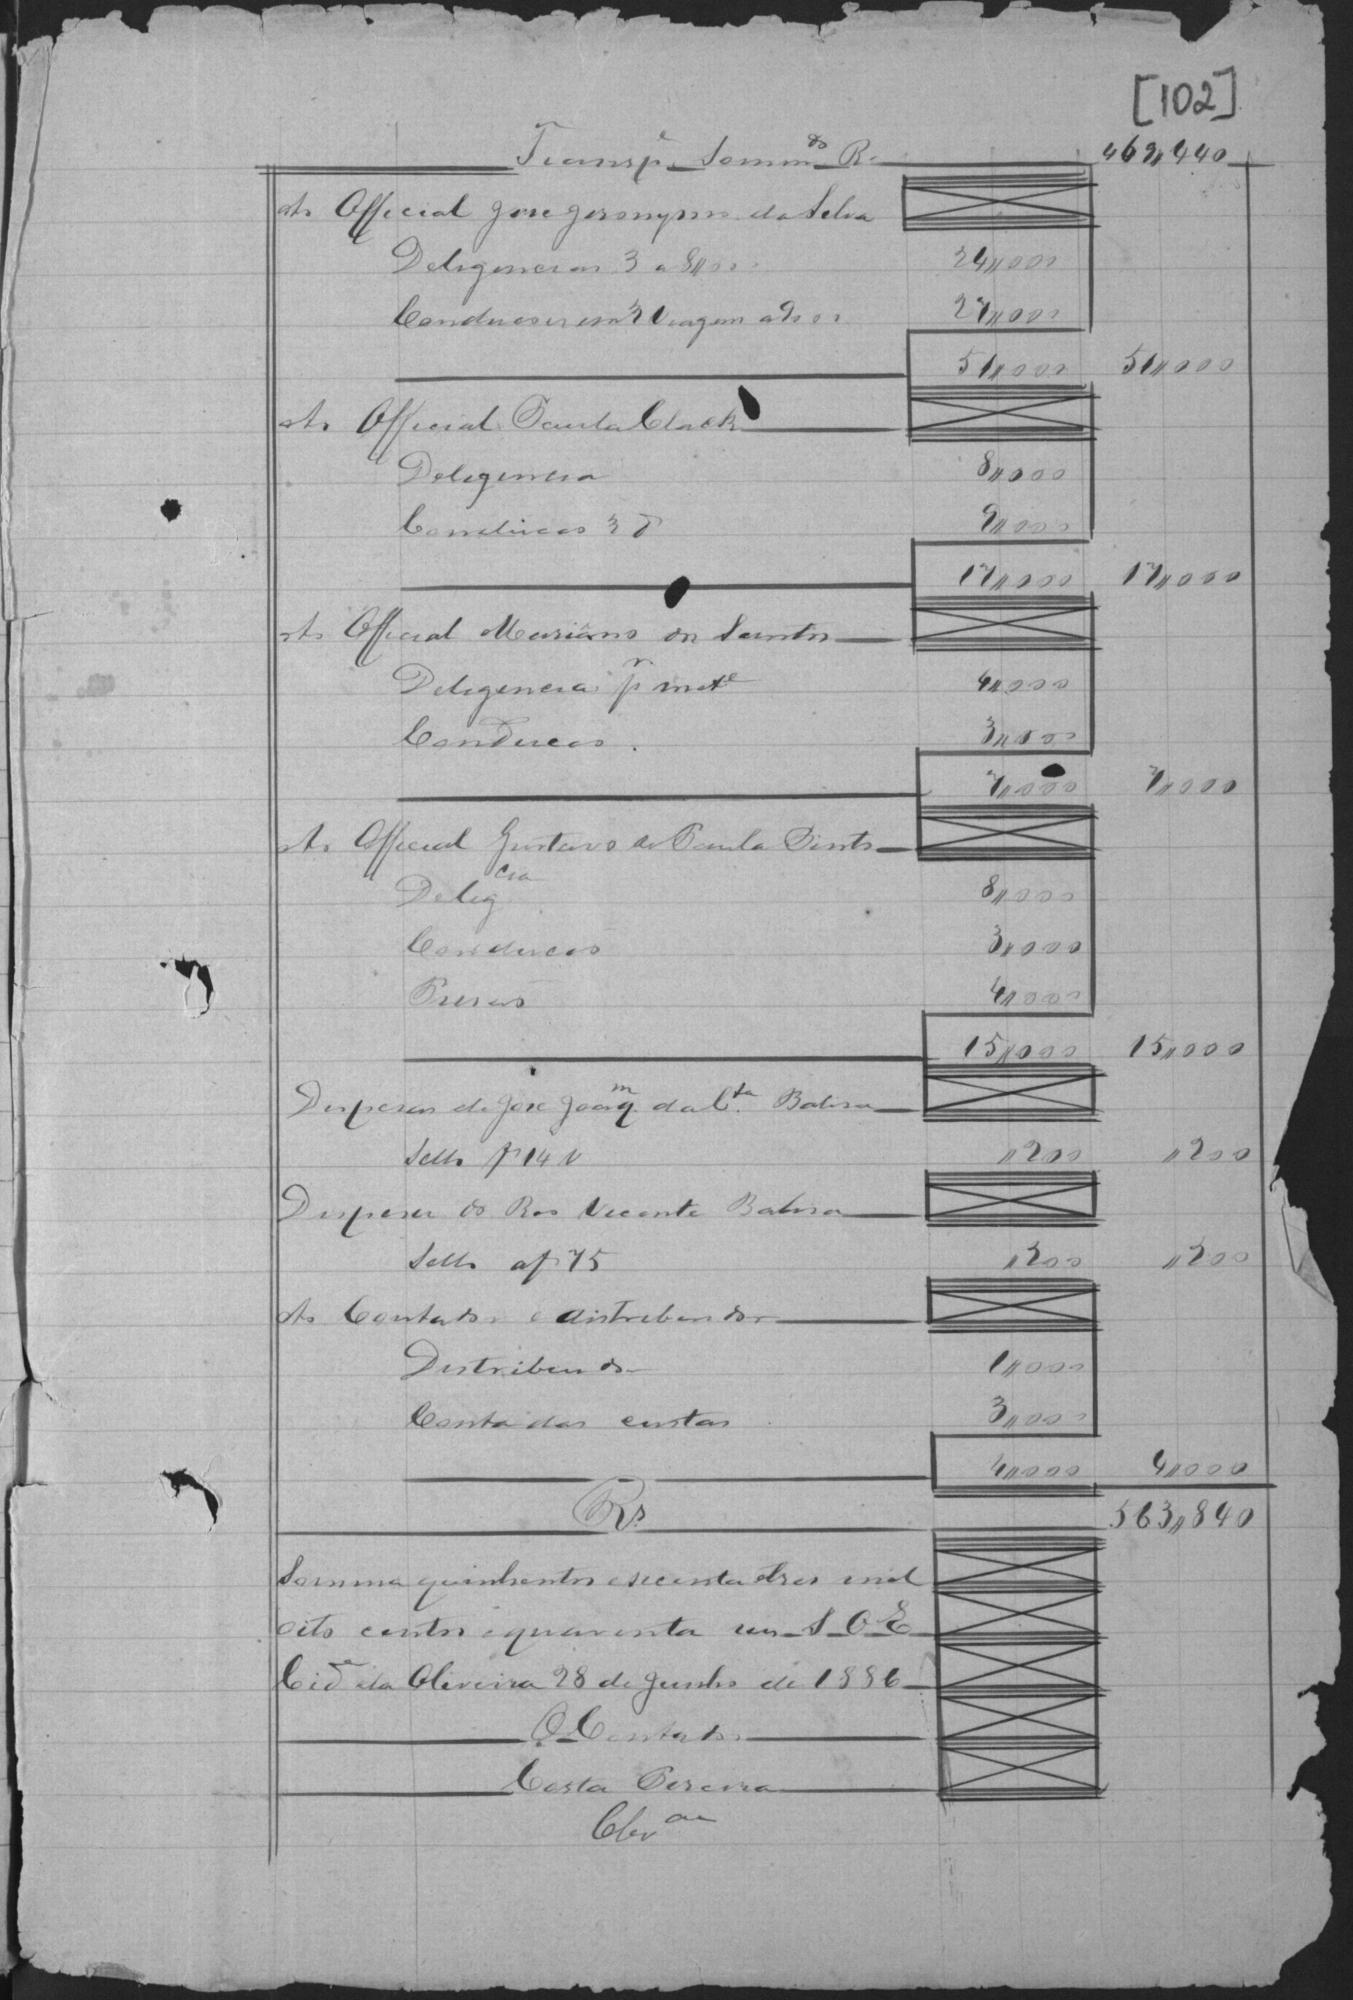 [102]
Transpe Sommdo Rs 469,,440
Ao Official Jose Jeronymo da Silva
Deligencias 3 a 8,,000 24,,000
Conducções em 3 Viagem a 9000 27,,000
51,,000 51,,000
Ao Official Paula Clack
Deligencia 8,,000
Conducão 3 9,,000
17,,000 17,,000
Ao Official Mariãno dos Santos
Deligencia pr mete 4,,000
Conducão. 3,,000
7,,000 7,,000
Ao Official Gustavo de Paula Pinto
Deligcia 8,,000
Conducão 3,,000
Prisão 4,,000
15,,000 15,,000
Despesas de Jose Joaqm da Cta Babosa
Sello f 14 V ,,200 ,,200
Despesa do Reo Vicente Babosa
Sello af 75 ,,200 ,,200
Ao Contador e distribuidor
Distribuidor 1,,000
Conta das custas 3,,000
4,,000 4,,000
Rs. 563,,840
Somma quinhentos e secenta e tres mil
oito centos e quarenta reis S. O. E
Cide da Oliveira 28 de Junho de 1886
O Contador
Costa Pereira